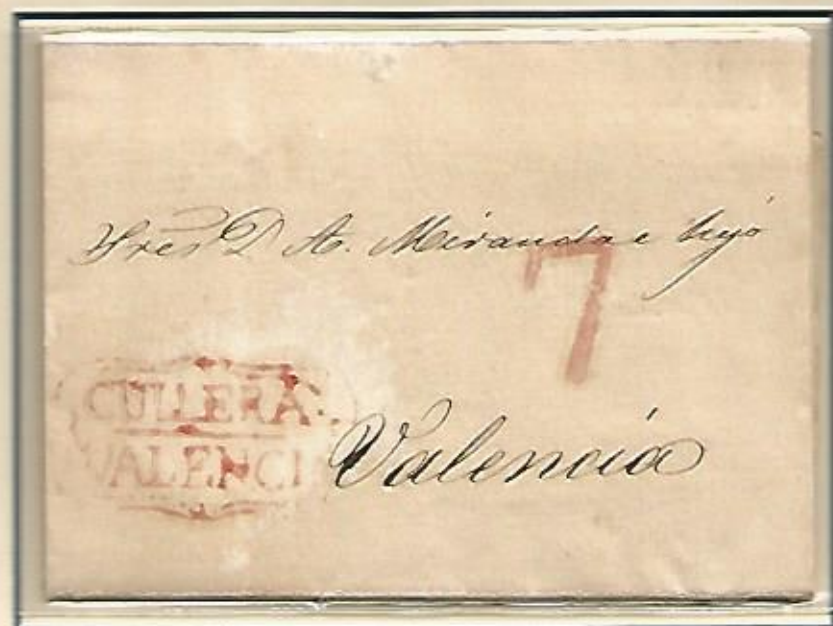 Sres D A. Miranda e hijo
7
CULLERA
VALENCIA
Valencia